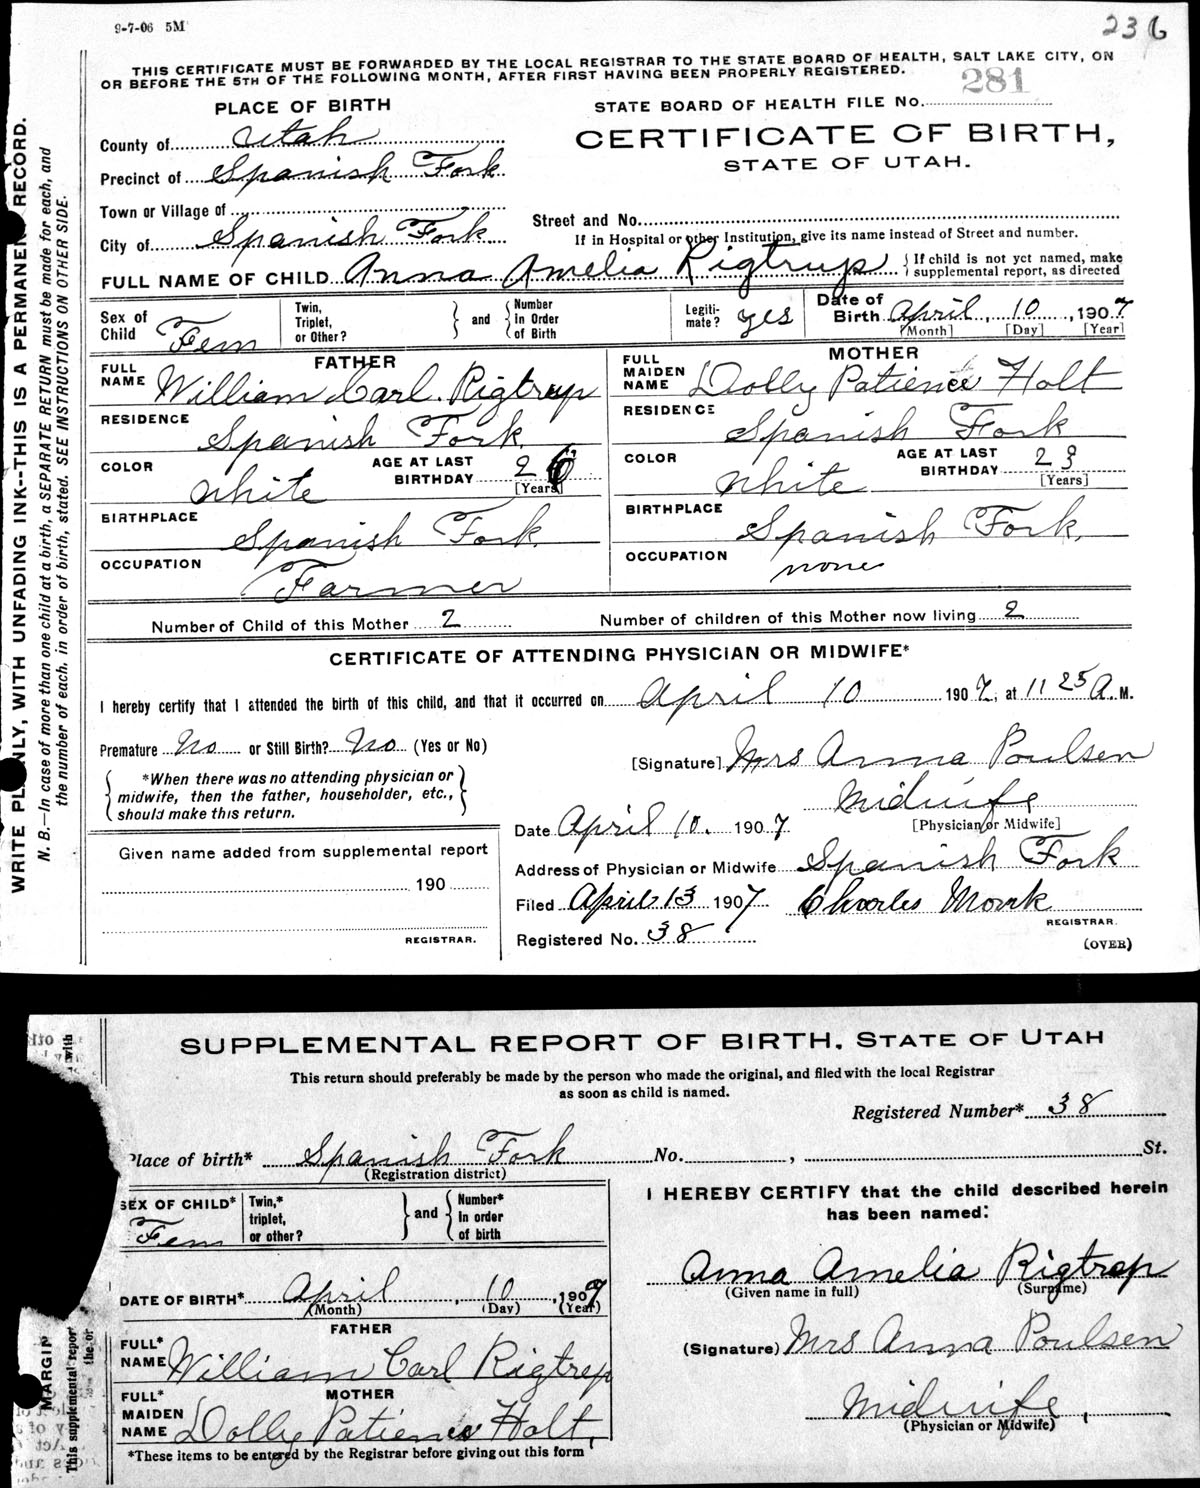 9-7-06 5M
236
THIS CERTIFICATE MUST BE FORWARDED BY THE LOCAL REGISTRAR TO THE STATE BOARD OF HEALTH, SALT LAKE CITY, ON
OR BEFORE THE 5TH OF THE FOLLOWING MONTH, AFTER FIRST HAVING BEEN PROPERLY REGISTERED.
PLACE OF BIRTH
STATE BOARD OF HEALTH FILE No. 281
County of Utah
CERTIFICATE OF BIRTH,
STATE OF UTAH.
Precinct of Spanish Fork
Town or Village of
Street and No.
City of Spanish Fork
If in Hospital or other Institution, give its name instead of Street and number.
FULL NAME OF CHILD Anna Amelia Rigtrup { If child is not yet named, make
supplemental report, as directed
Sex of Child Fem
Twin, Triplet, or Other? } and { Number in Order of Birth
Legitimate? yes
Date of Birth April 10, 1907
[Month] [Day] [Year]
FATHER
FULL NAME William Carl Rigtrup
RESIDENCE Spanish Fork
COLOR White
AGE AT LAST BIRTHDAY 26
[Years]
BIRTHPLACE Spanish Fork
OCCUPATION Farmer
MOTHER
FULL MAIDEN NAME Dolly Patience Holt
RESIDENCE Spanish Fork
COLOR White
AGE AT LAST BIRTHDAY 23
[Years]
BIRTHPLACE Spanish Fork.
OCCUPATION none
Number of Child of this Mother 2
Number of children of this Mother now living 2
CERTIFICATE OF ATTENDING PHYSICIAN OR MIDWIFE*
I hereby certify that I attended the birth of this child, and that it occurred on April 10 1907, at 11 25 A. M.
Premature No or Still Birth? No (Yes or No)
[Signature] Mrs Anna Poulsen
*When there was no attending physician or
midwife, then the father, householder, etc.,
should make this return.
Midwife
[Physician or Midwife]
Date April 10. 1907
Address of Physician or Midwife Spanish Fork
Given name added from supplemental report
190
REGISTRAR.
Filed April 13 1907 Charles Monk
REGISTRAR.
Registered No. 38
(OVER)
WRITE PLAINLY, WITH UNFADING INK--THIS IS A PERMANENT RECORD.
N. B.—In case of more than one child at a birth, a SEPARATE RETURN must be made for each, and
the number of each, in order of birth, stated. SEE INSTRUCTIONS ON OTHER SIDE.
SUPPLEMENTAL REPORT OF BIRTH, STATE OF UTAH
This return should preferably be made by the person who made the original, and filed with the local Registrar
as soon as child is named.
Registered Number* 38
Place of birth* Spanish Fork No. , St.
(Registration district)
SEX OF CHILD* Fem
Twin,* triplet, or other? } and { Number* In order of birth
DATE OF BIRTH* April 10, 1907
(Month) (Day) (Year)
FATHER
FULL* NAME William Carl Rigtrup
MOTHER
FULL* MAIDEN NAME Dolly Patience Holt
*These items to be entered by the Registrar before giving out this form
I HEREBY CERTIFY that the child described herein
has been named:
Anna Amelia Rigtrup
(Given name in full) (Surname)
(Signature) Mrs Anna Poulsen
Midwife
(Physician or Midwife)
MARGIN
This supplemental report
the or
with